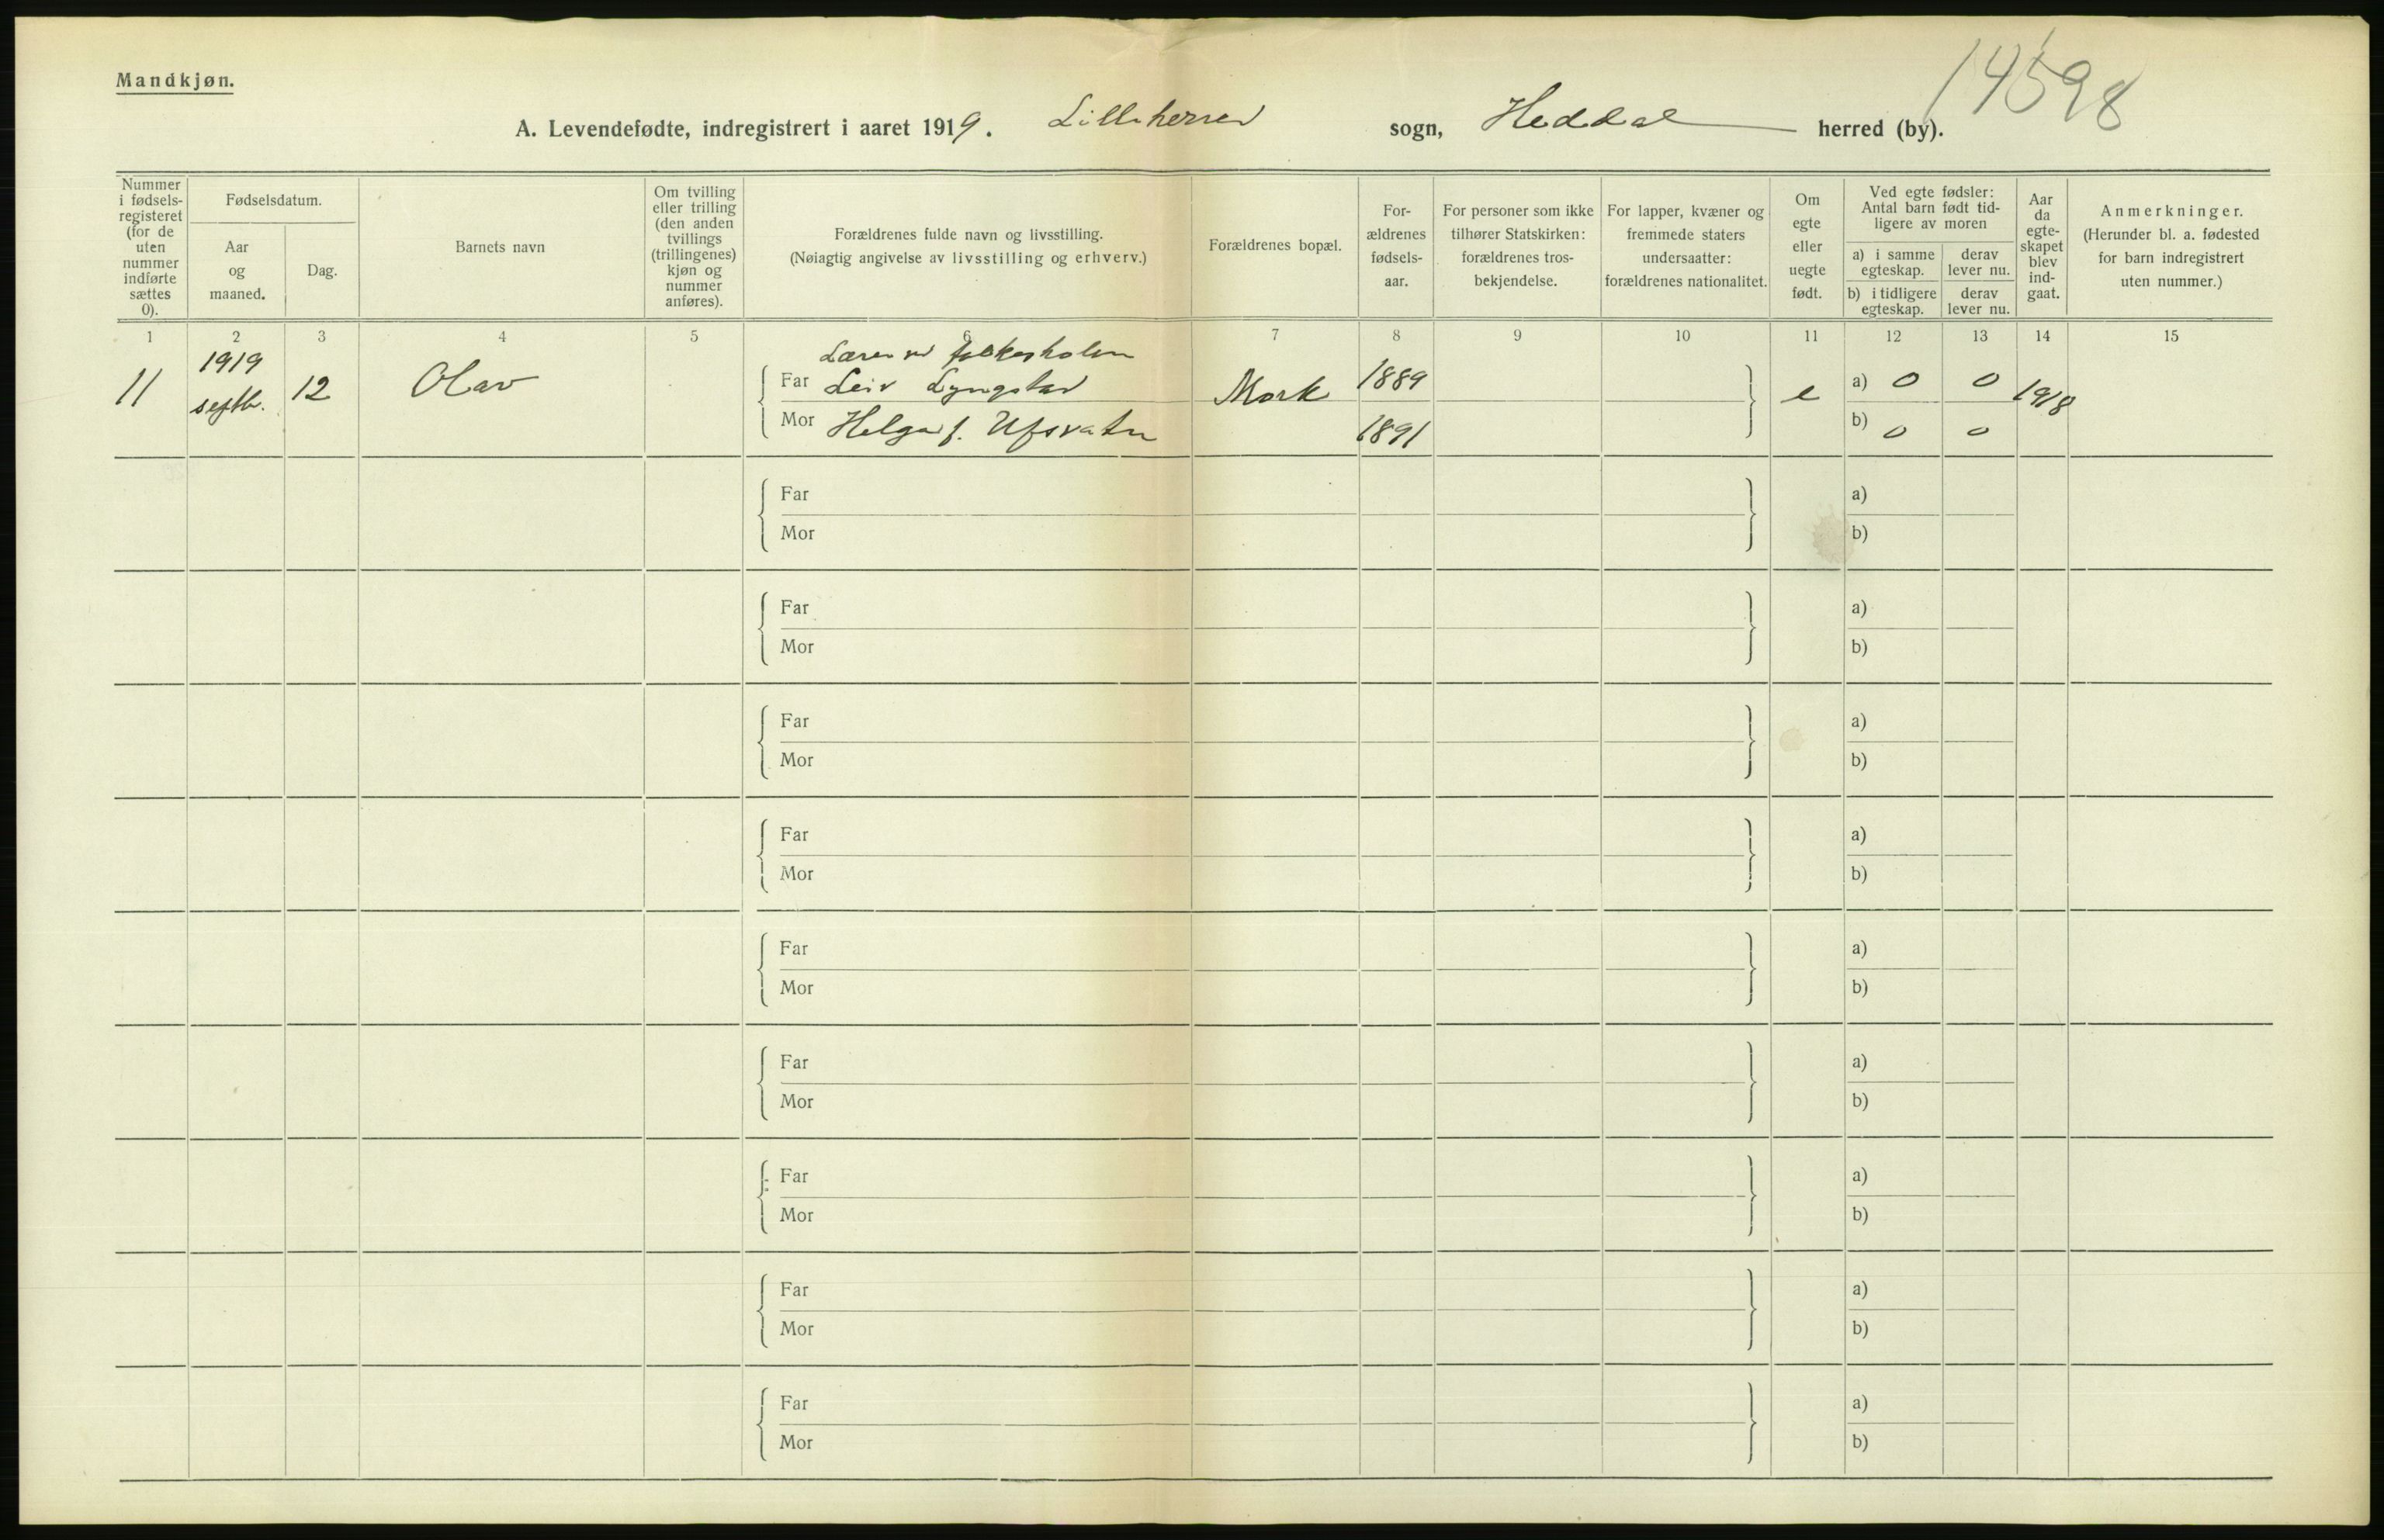 Mandkjøn.
14598
A. Levendefødte, indregistrert i aaret 1919. Lilleherred sogn, Heddal herred (by).
Nummer i fødsels-registeret (for de uten nummer indførte sættes 0).
Fødselsdatum.
Aar og maaned.
Dag.
Barnets navn
Om tvilling eller trilling (den anden tvillings (trillingenes) kjøn og nummer anføres).
Forældrenes fulde navn og livsstilling.
(Nøiagtig angivelse av livsstilling og erhverv.)
Forældrenes bopæl.
For-ældrenes fødsels-aar.
For personer som ikke tilhører Statskirken: forældrenes tros-bekjendelse.
For lapper, kvæner og fremmede staters undersaatter: forældrenes nationalitet.
Om egte eller uegte født.
Ved egte fødsler: Antal barn født tid-ligere av moren
a) i samme egteskap.
derav lever nu.
b) i tidligere egteskap.
derav lever nu.
Aar da egte-skapet blev ind-gaat.
Anmerkninger.
(Herunder bl. a. fødested for barn indregistrert uten nummer.)
1 2 3 4 5 6 7 8 9 10 11 12 13 14 15
11 1919 septb. 12 Olav
Lærer ved folkeskolen
Far Leiv Lyngstad Mork 1889 e a) 0 0 1918
Mor Helga f. Ufsvatn 1891 b) 0 0
Far a)
Mor b)
Far a)
Mor b)
Far a)
Mor b)
Far a)
Mor b)
Far a)
Mor b)
Far a)
Mor b)
Far a)
Mor b)
Far a)
Mor b)
Far a)
Mor b)